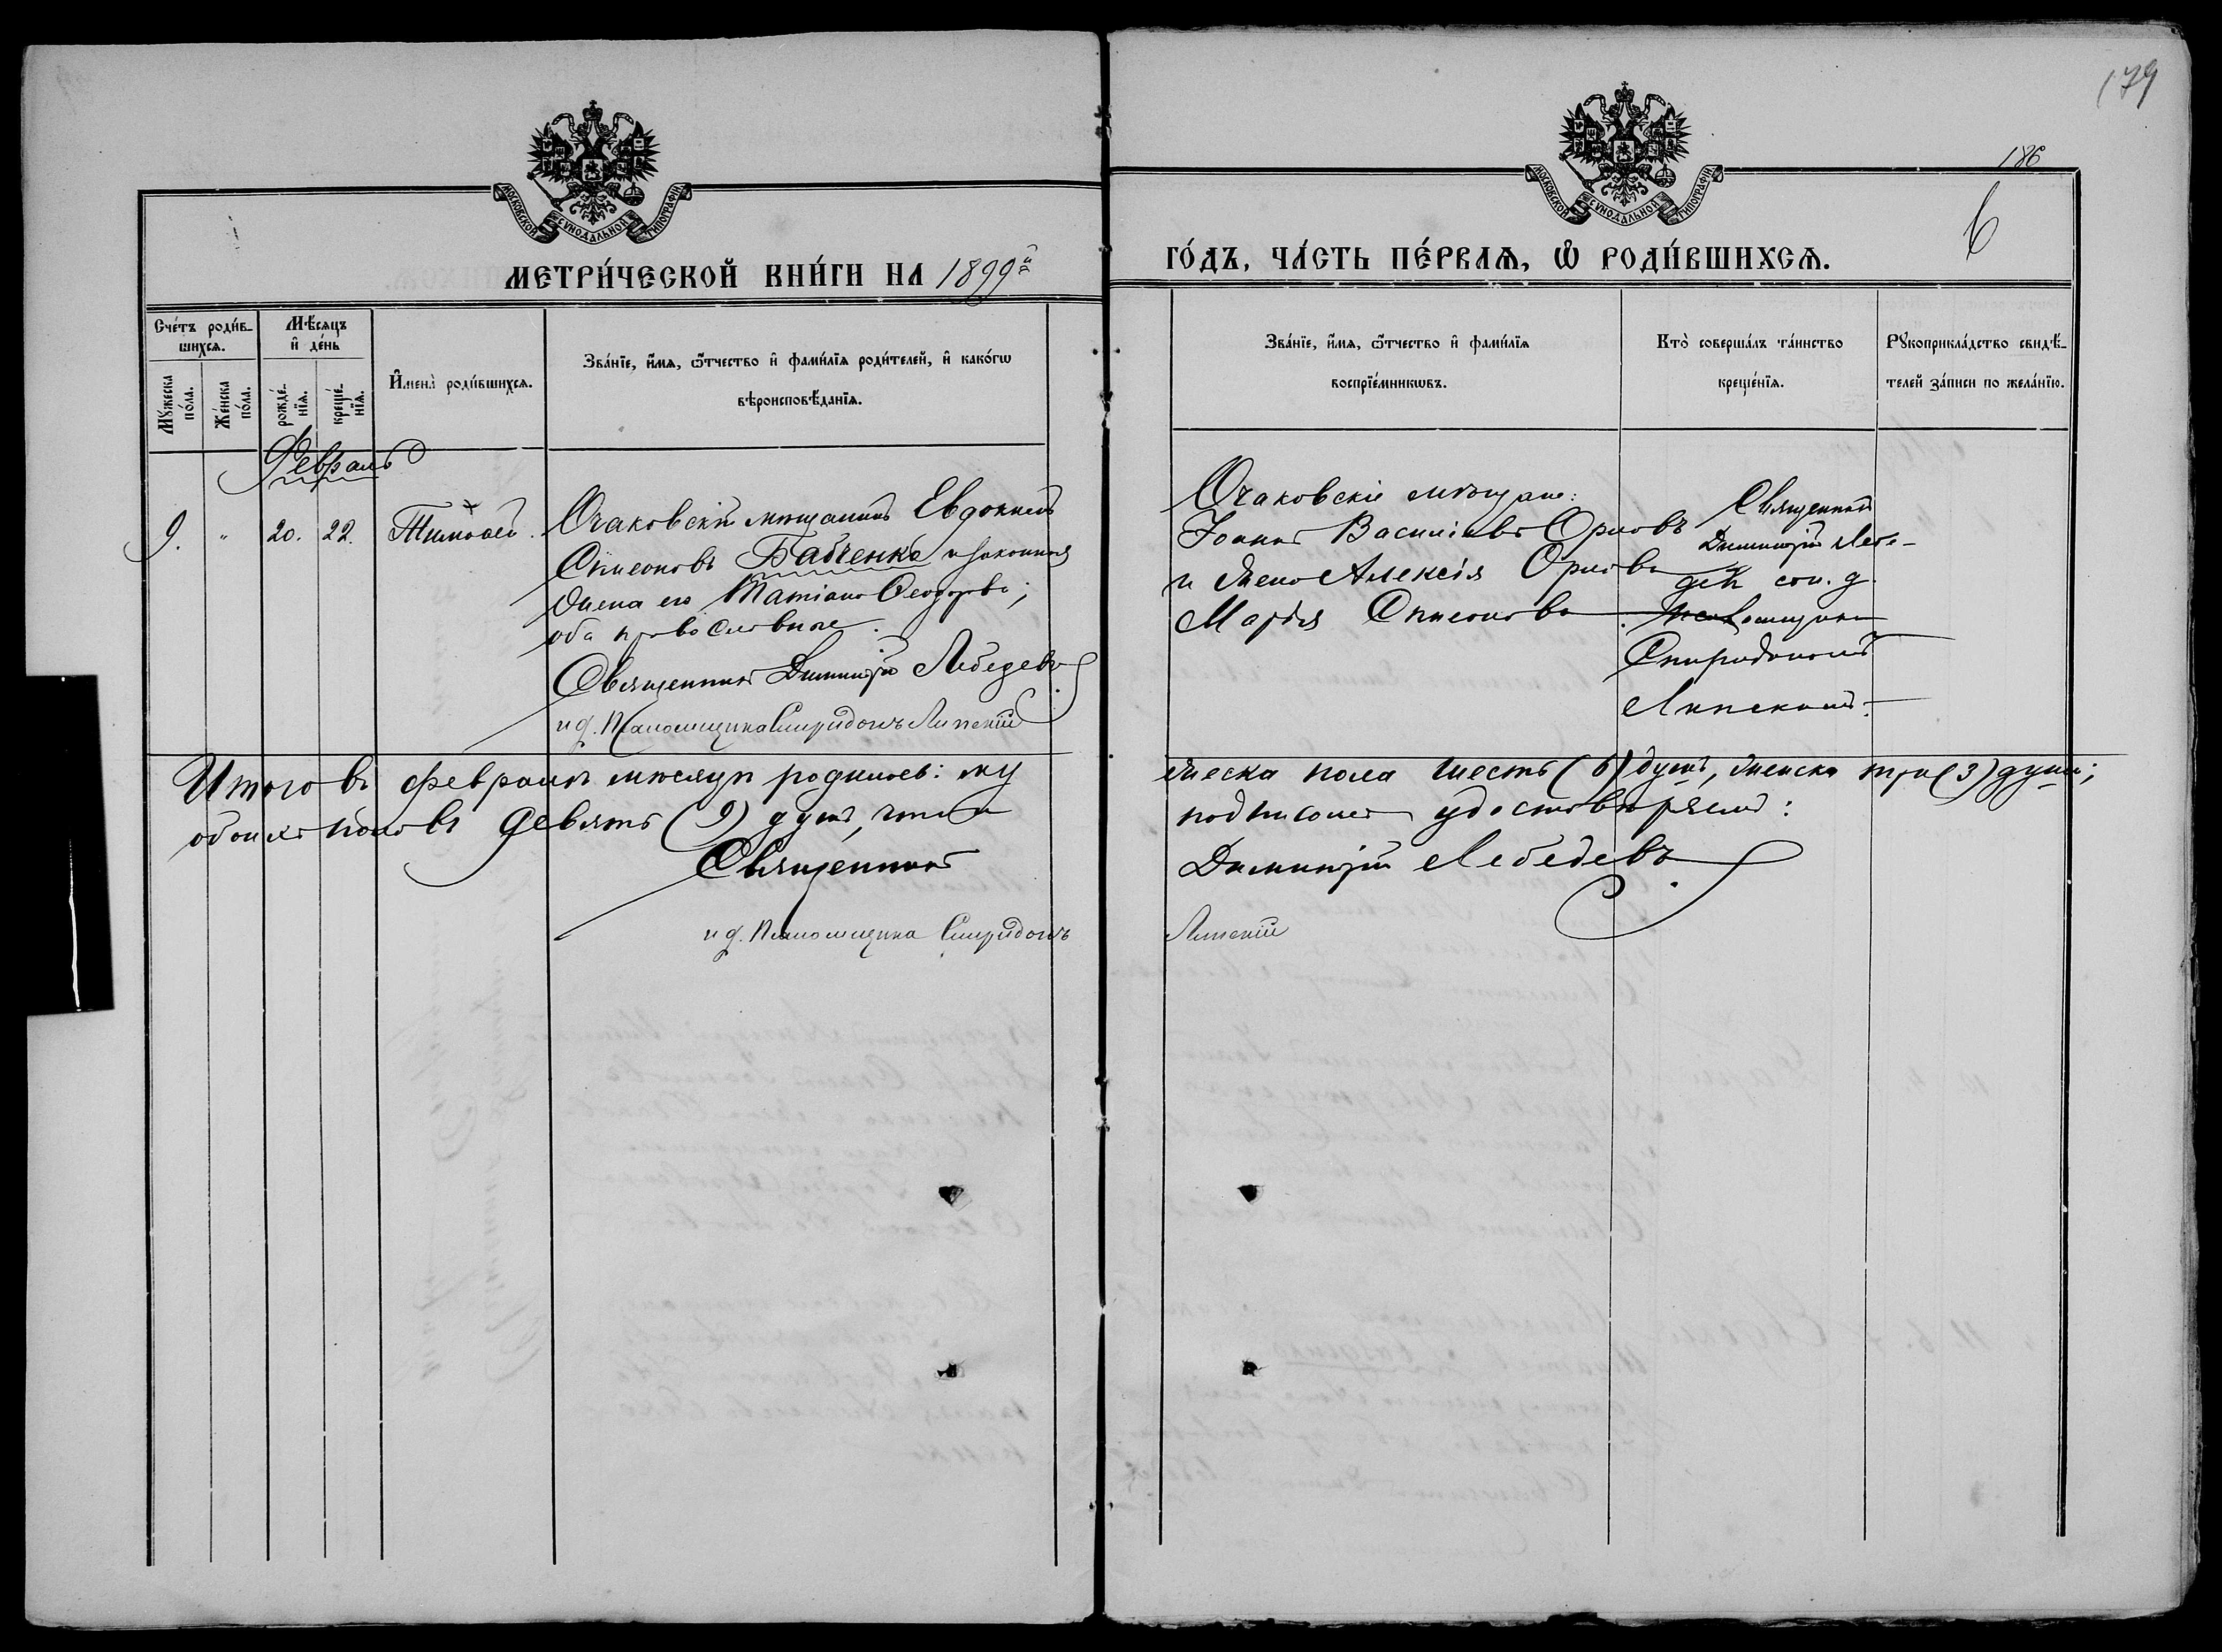 179
186
6
МОСКОВСКОЙ СѴНОДАЛЬНОЙ ТИПОГРАФІИ
МОСКОВСКОЙ СѴНОДАЛЬНОЙ ТИПОГРАФІИ
МЕТРИ́ЧЕСКОЙ КНИ́ГИ НА 1899й
ГО́ДЪ, ЧА́СТЬ ПЕ́РВАѦ, Ѡ҆ РОДИ́ВШИХСѦ.
Сче́тъ роди́в-
шихсѧ.
Мѣ́сѧцъ
и҆ де́нь
Мꙋ́жеска
по́ла.
Же́нска
по́ла.
рожде́-
нїѧ.
креще́-
нїѧ.
И҆мена̀ роди́вшихсѧ.
Зва́нїе, и҆́мѧ, ѻ҆́тчество и҆ фами́лїѧ роди́телей, и҆ како́гѡ
вѣроисповѣ́данїѧ.
Зва́нїе, и҆́мѧ, ѻ҆́тчество и҆ фами́лїѧ
воспрїе́мникѡвъ.
Кто̀ соверша́лъ та́инство
креще́нїѧ.
Рꙋкоприкла́дство свидѣ́-
телей за́писи по жела́нїю.
Февраль
9. " 20. 22. Тимоѳей.
Очаковскій мѣщанинъ Евдокимъ
Симеоновъ Бабченко и законная
жена его Татіана Ѳеодорова;
оба православные.
Священникъ Димитрій Лебедевъ
и д. Псаломщика Спиридонъ Липскій
Очаковскіе мѣщане:
Іоаннъ Васильевъ Орловъ
и жена Алексія Орлова
Марія Симеонова.
Священникъ
Димитрій Лебе-
девъ съ и. д.
Псаломщика
Спиридономъ
Липскимъ.
Итого въ февралѣ мѣсяцѣ родилось: му
жеска пола шесть (6) душъ, женска три (3) души;
обоихъ половъ девять (9) душъ, что и
подписомъ удостовѣряемъ:
Священникъ
Димитрій Лебедевъ
и д. Псаломщика Спиридонъ
Липскій